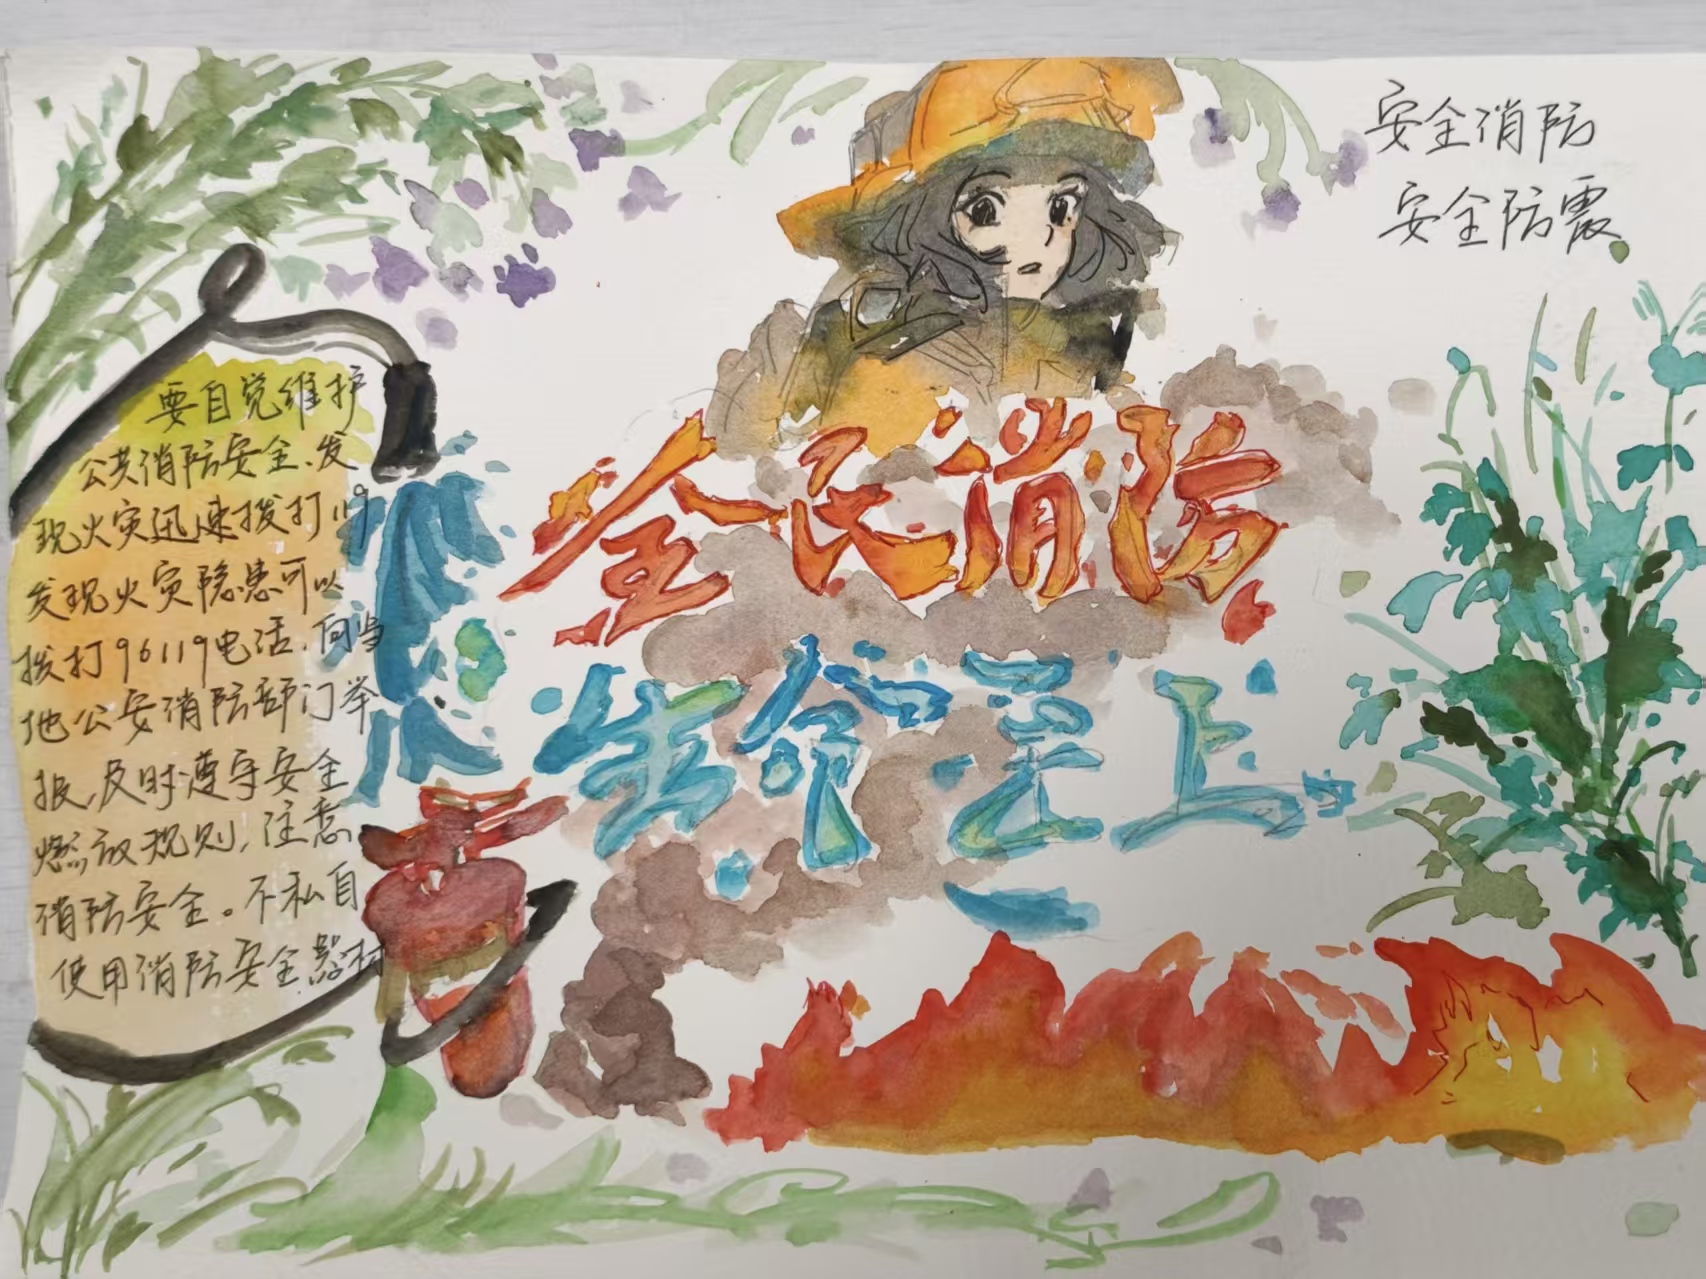 安全消防
安全防震
全民消防
生命至上
要自觉维护
公共消防安全、发
现火灾迅速拨打119
发现火灾隐患可以
拨打96119电话.向当
地公安消防部门举
报,及时遵守安全
燃放规则,注意
消防安全。不私自
使用消防安全器材